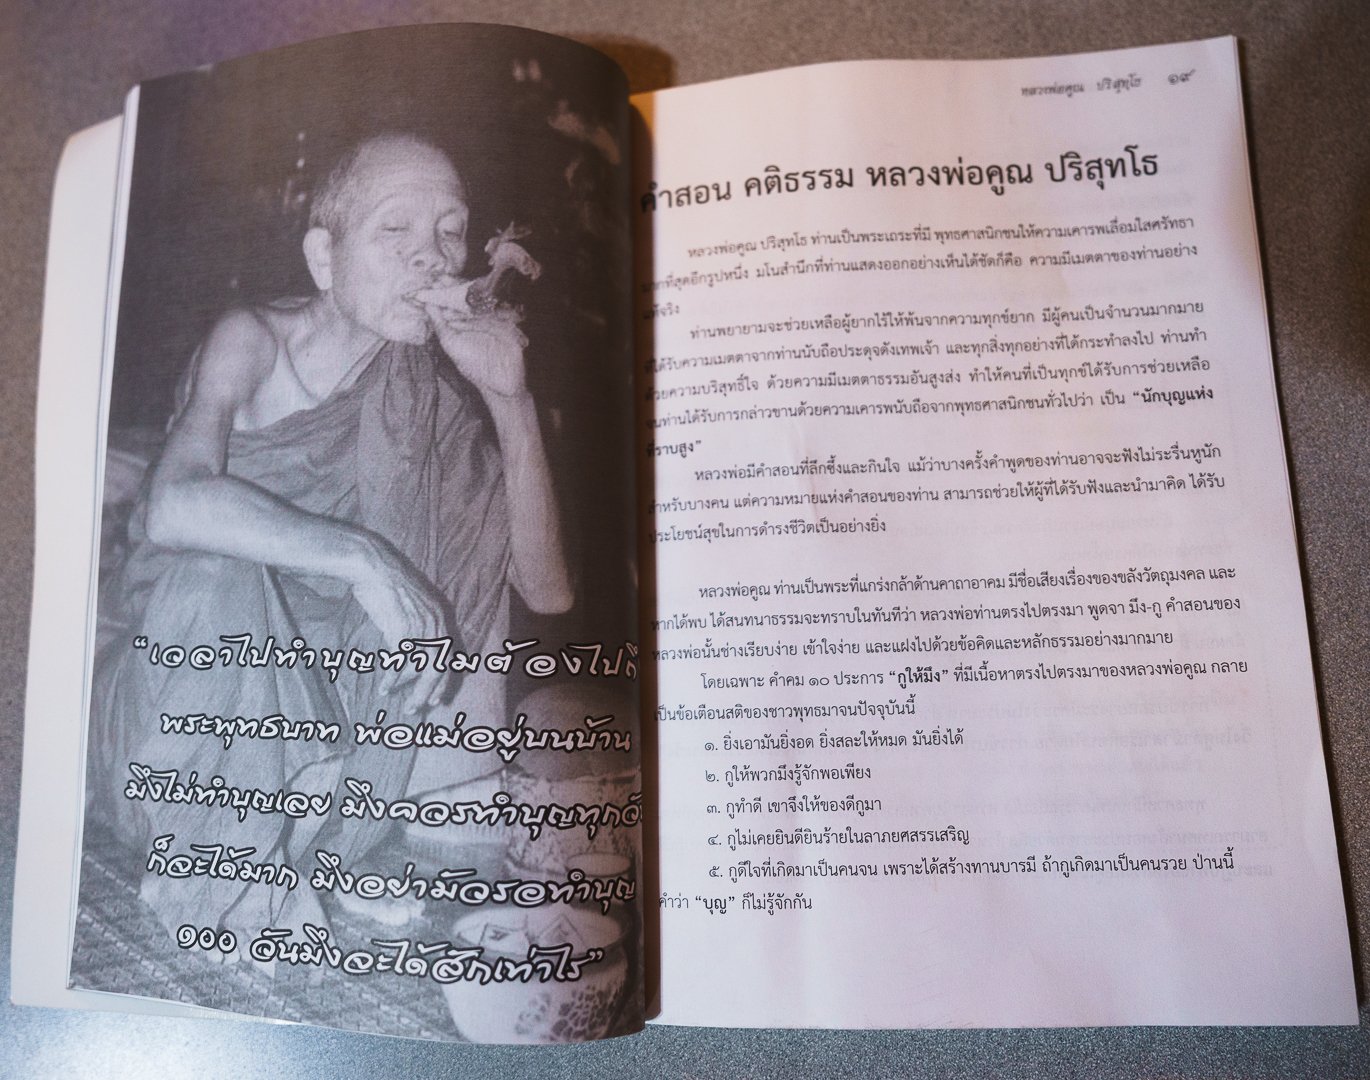 “เวลาไปทำบุญทำไมต้องไปถึ
พระพุทธบาท พ่อแม่อยู่บนบ้าน
มึงไม่ทำบุญเลย มึงควรทำบุญทุกวั
ก็จะได้มาก มึงอย่ามัวรอทำบุญ
๑๐๐ วันมึงจะได้สักเท่าไร”
หลวงพ่อคูณ ปริสุทฺโธ ๑๙
คำสอน คติธรรม หลวงพ่อคูณ ปริสุทโธ
หลวงพ่อคูณ ปริสุทโธ ท่านเป็นพระเถระที่มี พุทธศาสนิกชนให้ความเคารพเลื่อมใสศรัทธา
มากที่สุดอีกรูปหนึ่ง มโนสำนึกที่ท่านแสดงออกอย่างเห็นได้ชัดก็คือ ความมีเมตตาของท่านอย่าง
แท้จริง
ท่านพยายามจะช่วยเหลือผู้ยากไร้ให้พ้นจากความทุกข์ยาก มีผู้คนเป็นจำนวนมากมาย
ที่ได้รับความเมตตาจากท่านนับถือประดุจดังเทพเจ้า และทุกสิ่งทุกอย่างที่ได้กระทำลงไป ท่านทำ
ด้วยความบริสุทธิ์ใจ ด้วยความมีเมตตาธรรมอันสูงส่ง ทำให้คนที่เป็นทุกข์ได้รับการช่วยเหลือ
จนท่านได้รับการกล่าวขานด้วยความเคารพนับถือจากพุทธศาสนิกชนทั่วไปว่า เป็น “นักบุญแห่ง
ที่ราบสูง”
หลวงพ่อมีคำสอนที่ลึกซึ้งและกินใจ แม้ว่าบางครั้งคำพูดของท่านอาจจะฟังไม่ระรื่นหูนัก
สำหรับบางคน แต่ความหมายแห่งคำสอนของท่าน สามารถช่วยให้ผู้ที่ได้รับฟังและนำมาคิด ได้รับ
ประโยชน์สุขในการดำรงชีวิตเป็นอย่างยิ่ง
หลวงพ่อคูณ ท่านเป็นพระที่แกร่งกล้าด้านคาถาอาคม มีชื่อเสียงเรื่องของขลังวัตถุมงคล และ
หากได้พบ ได้สนทนาธรรมจะทราบในทันทีว่า หลวงพ่อท่านตรงไปตรงมา พูดจา มึง-กู คำสอนของ
หลวงพ่อนั้นช่างเรียบง่าย เข้าใจง่าย และแฝงไปด้วยข้อคิดและหลักธรรมอย่างมากมาย
โดยเฉพาะ คำคม ๑๐ ประการ “กูให้มึง” ที่มีเนื้อหาตรงไปตรงมาของหลวงพ่อคูณ กลาย
เป็นข้อเตือนสติของชาวพุทธมาจนปัจจุบันนี้
๑. ยิ่งเอามันยิ่งอด ยิ่งสละให้หมด มันยิ่งได้
๒. กูให้พวกมึงรู้จักพอเพียง
๓. กูทำดี เขาจึงให้ของดีกูมา
๔. กูไม่เคยยินดียินร้ายในลาภยศสรรเสริญ
๕. กูดีใจที่เกิดมาเป็นคนจน เพราะได้สร้างทานบารมี ถ้ากูเกิดมาเป็นคนรวย ป่านนี้
คำว่า “บุญ” ก็ไม่รู้จักกัน